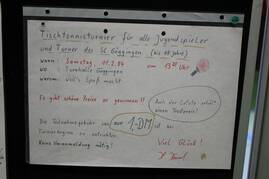 Tischtennisturnier für alle Jugendspieler
und Turner des SC Göggingen (bis 18 Jahre)
wann: Samstag, 11.2.84 um 13 Uhr
wo: Turnhalle Göggingen
warum: Weil's Spaß macht
Es gibt schöne Preise zu gewinnen!!
Auch der Letzte erhält
einen
Die Teilnahmegebühr von nur 1.-DM ist bei
Turnierbeginn zu entrichten.
Keine Voranmeldung nötig!
Viel Glück!